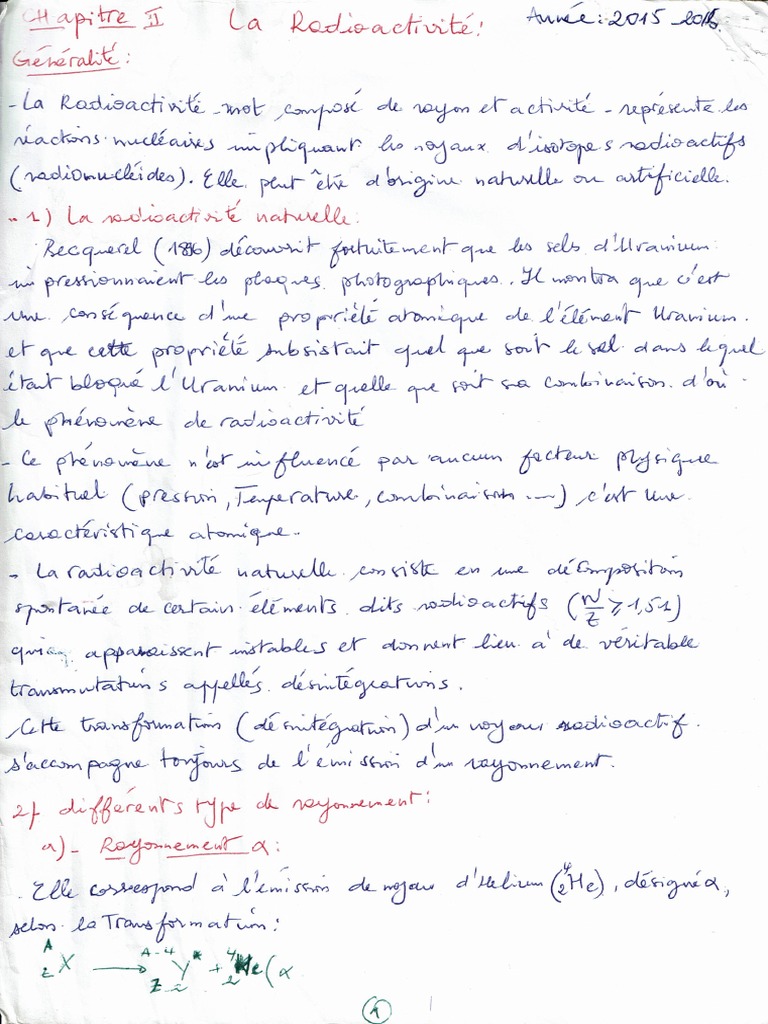 CHapitre II La Radioactivité! Année: 2015_2016.
Généralité:
- La Radioactivité - mot composé de rayon et activité - représente les
réactions nucléaires impliquant les noyaux d'isotopes radioactifs
(radionucléides). Elle peut être d'origine naturelle ou artificielle.
1) La radioactivité naturelle:
Becquerel (1896) découvrit fortuitement que les sels d'Uranium
impressionnaient les plaques photographiques. Il montra que c'est
une conséquence d'une propriété atomique de l'élément Uranium.
et que cette propriété subsistait quel que soit le sel dans lequel
était bloqué l'Uranium et quelle que soit sa combinaison d'où
le phénomène de radioactivité
- Ce phénomène n'est influencé par aucun facteur physique
habituel (pression, Température, combinaison ....) c'est une
caractéristique atomique..
- La radioactivité naturelle consiste en une décomposition
spontanée de certain éléments dits radioactifs (N/Z ≥ 1,51)
qui apparaissent instables et donnent lieu à de véritable
transmutations appellés désintégrations.
Cette transformation (désintégration) d'un noyau radioactif
s'accompagne toujours de l'émission d'un rayonnement.
2) différents type de rayonnement:
a)- Rayonnement α:
. Elle correspond à l'émission de noyau d'Helium (⁴₂He), désigné α,
selon la Transformation:
ᴬ_Z X → ᴬ⁻⁴_Z-2 Y* + ⁴₂He (α
1